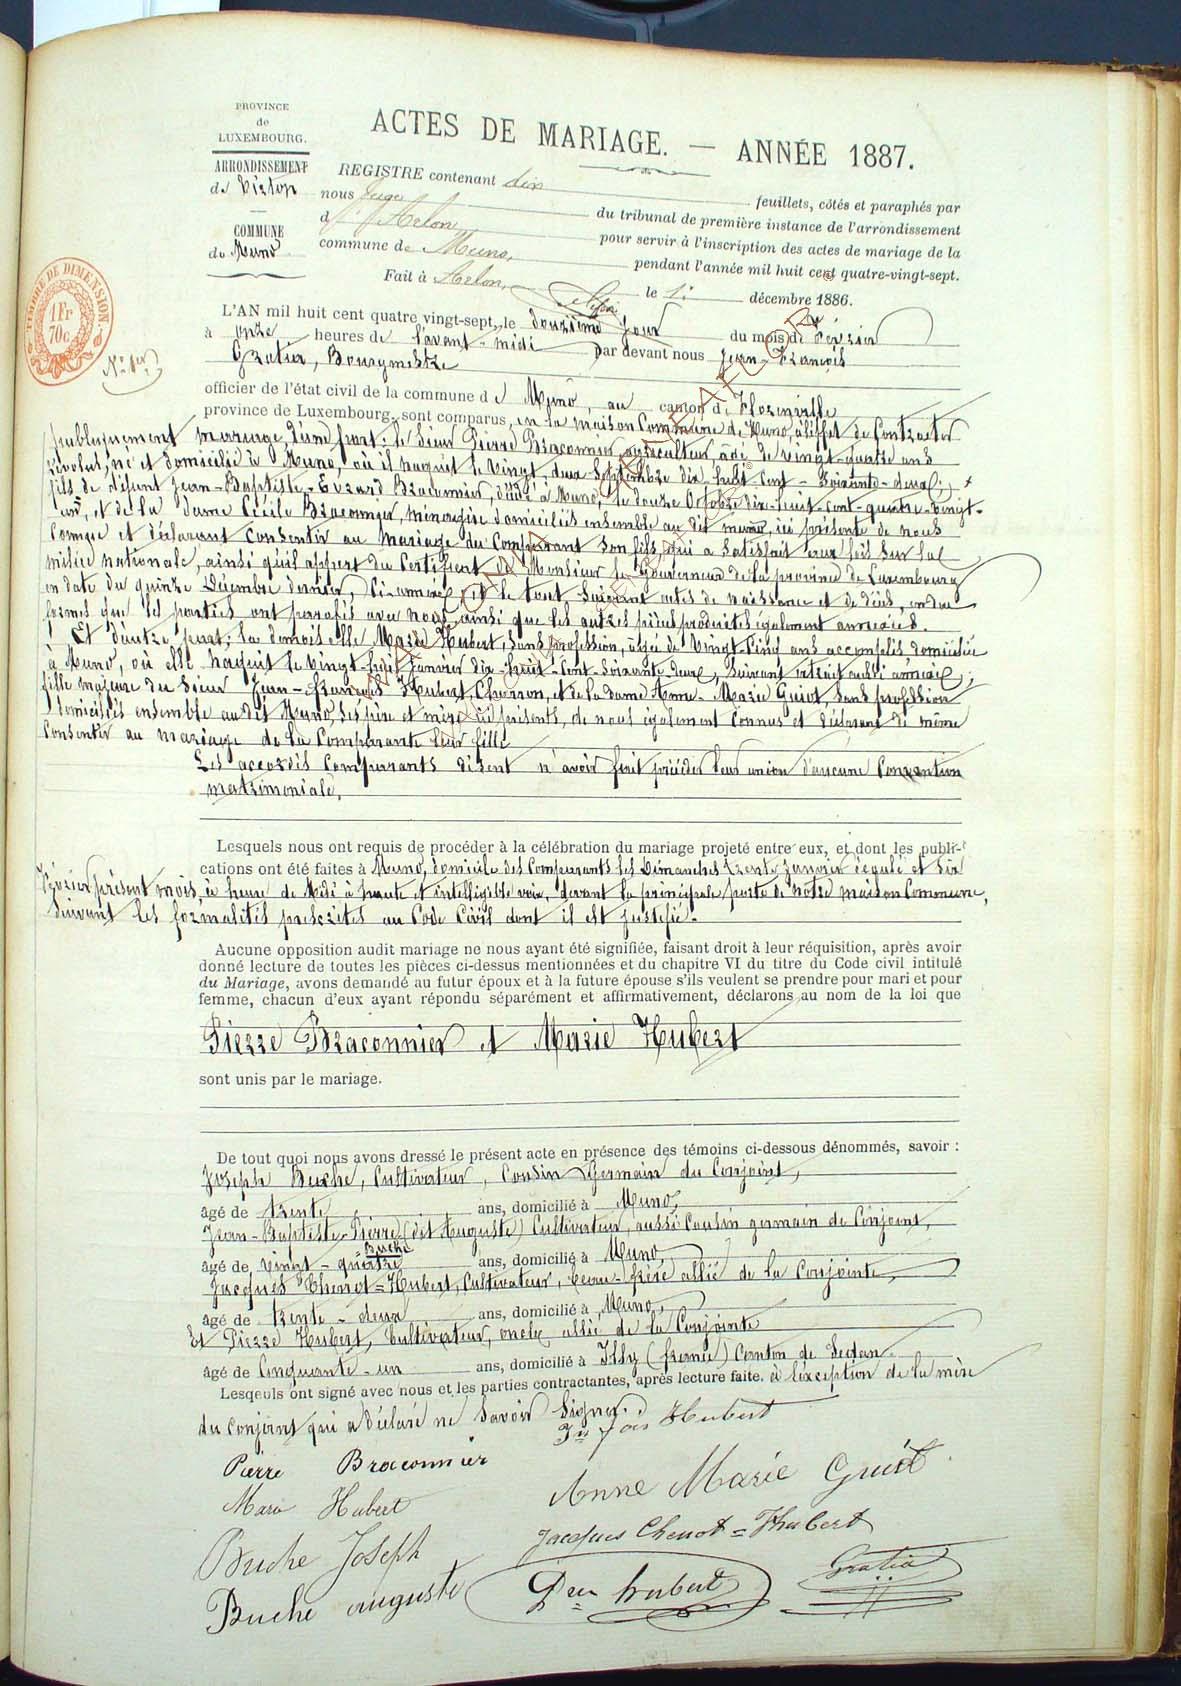 PROVINCE
de
LUXEMBOURG.
ARRONDISSEMENT
de Virton
COMMUNE
de Muno
ACTES DE MARIAGE. — ANNÉE 1887.
REGISTRE contenant dix feuillets, côtés et paraphés par
nous Juge du tribunal de première instance de l'arrondissement
d'Arlon pour servir à l'inscription des actes de mariage de la
commune de Muno, pendant l'année mil huit cent quatre-vingt-sept.
Fait à Arlon, le 1er décembre 1886.
TIMBRE DE DIMENSION
1 Fr
70c
No 1er
L'AN mil huit cent quatre vingt-sept, le douzième jour du mois de Février
à onze heures de l'avant-midi par devant nous Jean-François
Gratia, Bourgmestre
officier de l'état civil de la commune de Muno, au canton de Florenville
province de Luxembourg, sont comparus, en la maison Commune de Muno, à l'effet de Contracter
publiquement mariage, d'une part: le sieur Pierre Braconnier, agriculteur, âgé de vingt-quatre ans
révolus, né et domicilié à Muno, où il naquit le vingt-deux Septembre dix-huit-Cent-Soixante-deux;
fils de défunt Jean-Baptiste-Evrard Braconnier, décédé à Muno, le douze Octobre dix-huit-cent-quatre-vingt-
et de la dame Cécile Braconnier, ménagère domiciliés ensemble au dit même, ici présente de nous
Connue et déclarant Consentir au mariage du Comparant son fils qui a satisfait aux lois sur la
milice nationale, ainsi qu'il appert du Certificat de Monsieur le Gouverneur de la province de Luxembourg
en date du quinze Décembre dernier, Ci-annexé et le tout Suivant actes de naissance et de décès, en due
formes que les parties ont parafés avec nous ainsi que les autres pièces produites également annexées.
Et d'autre part: la demoiselle Marie Hubert, Sans profession, âgée de Vingt-Cinq ans accomplis domiciliée
à Muno, où elle naquit le vingt-huit Janvier dix-huit-Cent-Soixante-deux, Suivant extrait aussi annexé;
fille majeure du Sieur Jean-François Hubert, Charron, et de la dame Anne-Marie Guiot, Sans profession
domiciliés ensemble au dit Muno, Ses père et mère ici présents, de nous également Connus et déclarant de même
Consentir au mariage de la Comparante leur fille
Les accordés Comparants disent n'avoir fait précéder leur union d'aucune Convention
matrimoniale.
Lesquels nous ont requis de procéder à la célébration du mariage projeté entre eux, et dont les publi-
cations ont été faites à Muno, domicile des Comparants les Dimanches trente Janvier écoulé et six
Février présent mois, à heure de Midi à haute et intelligible voix, devant la principale porte de notre maison Commune,
Suivant les formalités prescrites au Code Civil dont il est justifié.
Aucune opposition audit mariage ne nous ayant été signifiée, faisant droit à leur réquisition, après avoir
donné lecture de toutes les pièces ci-dessus mentionnées et du chapitre VI du titre du Code civil intitulé
du Mariage, avons demandé au futur époux et à la future épouse s'ils veulent se prendre pour mari et pour
femme, chacun d'eux ayant répondu séparément et affirmativement, déclarons au nom de la loi que
Pierre Braconnier et Marie Hubert
sont unis par le mariage.
De tout quoi nous avons dressé le présent acte en présence des témoins ci-dessous dénommés, savoir :
Joseph Buche, Cultivateur, Cousin Germain du Conjoint,
âgé de trente ans, domicilié à Muno,
Jean-Baptiste-Pierre (dit Auguste) Cultivateur, aussi Cousin germain du Conjoint,
Buche
âgé de vingt-quatre ans, domicilié à Muno
Jacques Chenot=Hubert, Cultivateur, beau-frère allié de la Conjointe,
âgé de trente-deux ans, domicilié à Muno,
Et Pierre Hubert, Cultivateur, oncle allié de la Conjointe
âgé de Cinquante-un ans, domicilié à Illy (france) Canton de Sedan.
Lesqeuls ont signé avec nous et les parties contractantes, après lecture faite. à l'exception de la mère
du conjoint qui a déclaré ne Savoir Signer.
Jn fois Hubert
Pierre Braconnier
Anne Marie Guiot
Marie Hubert
Jacques Chenot=Hubert
Buche Joseph
Gratia
Buche auguste
Pre hubert